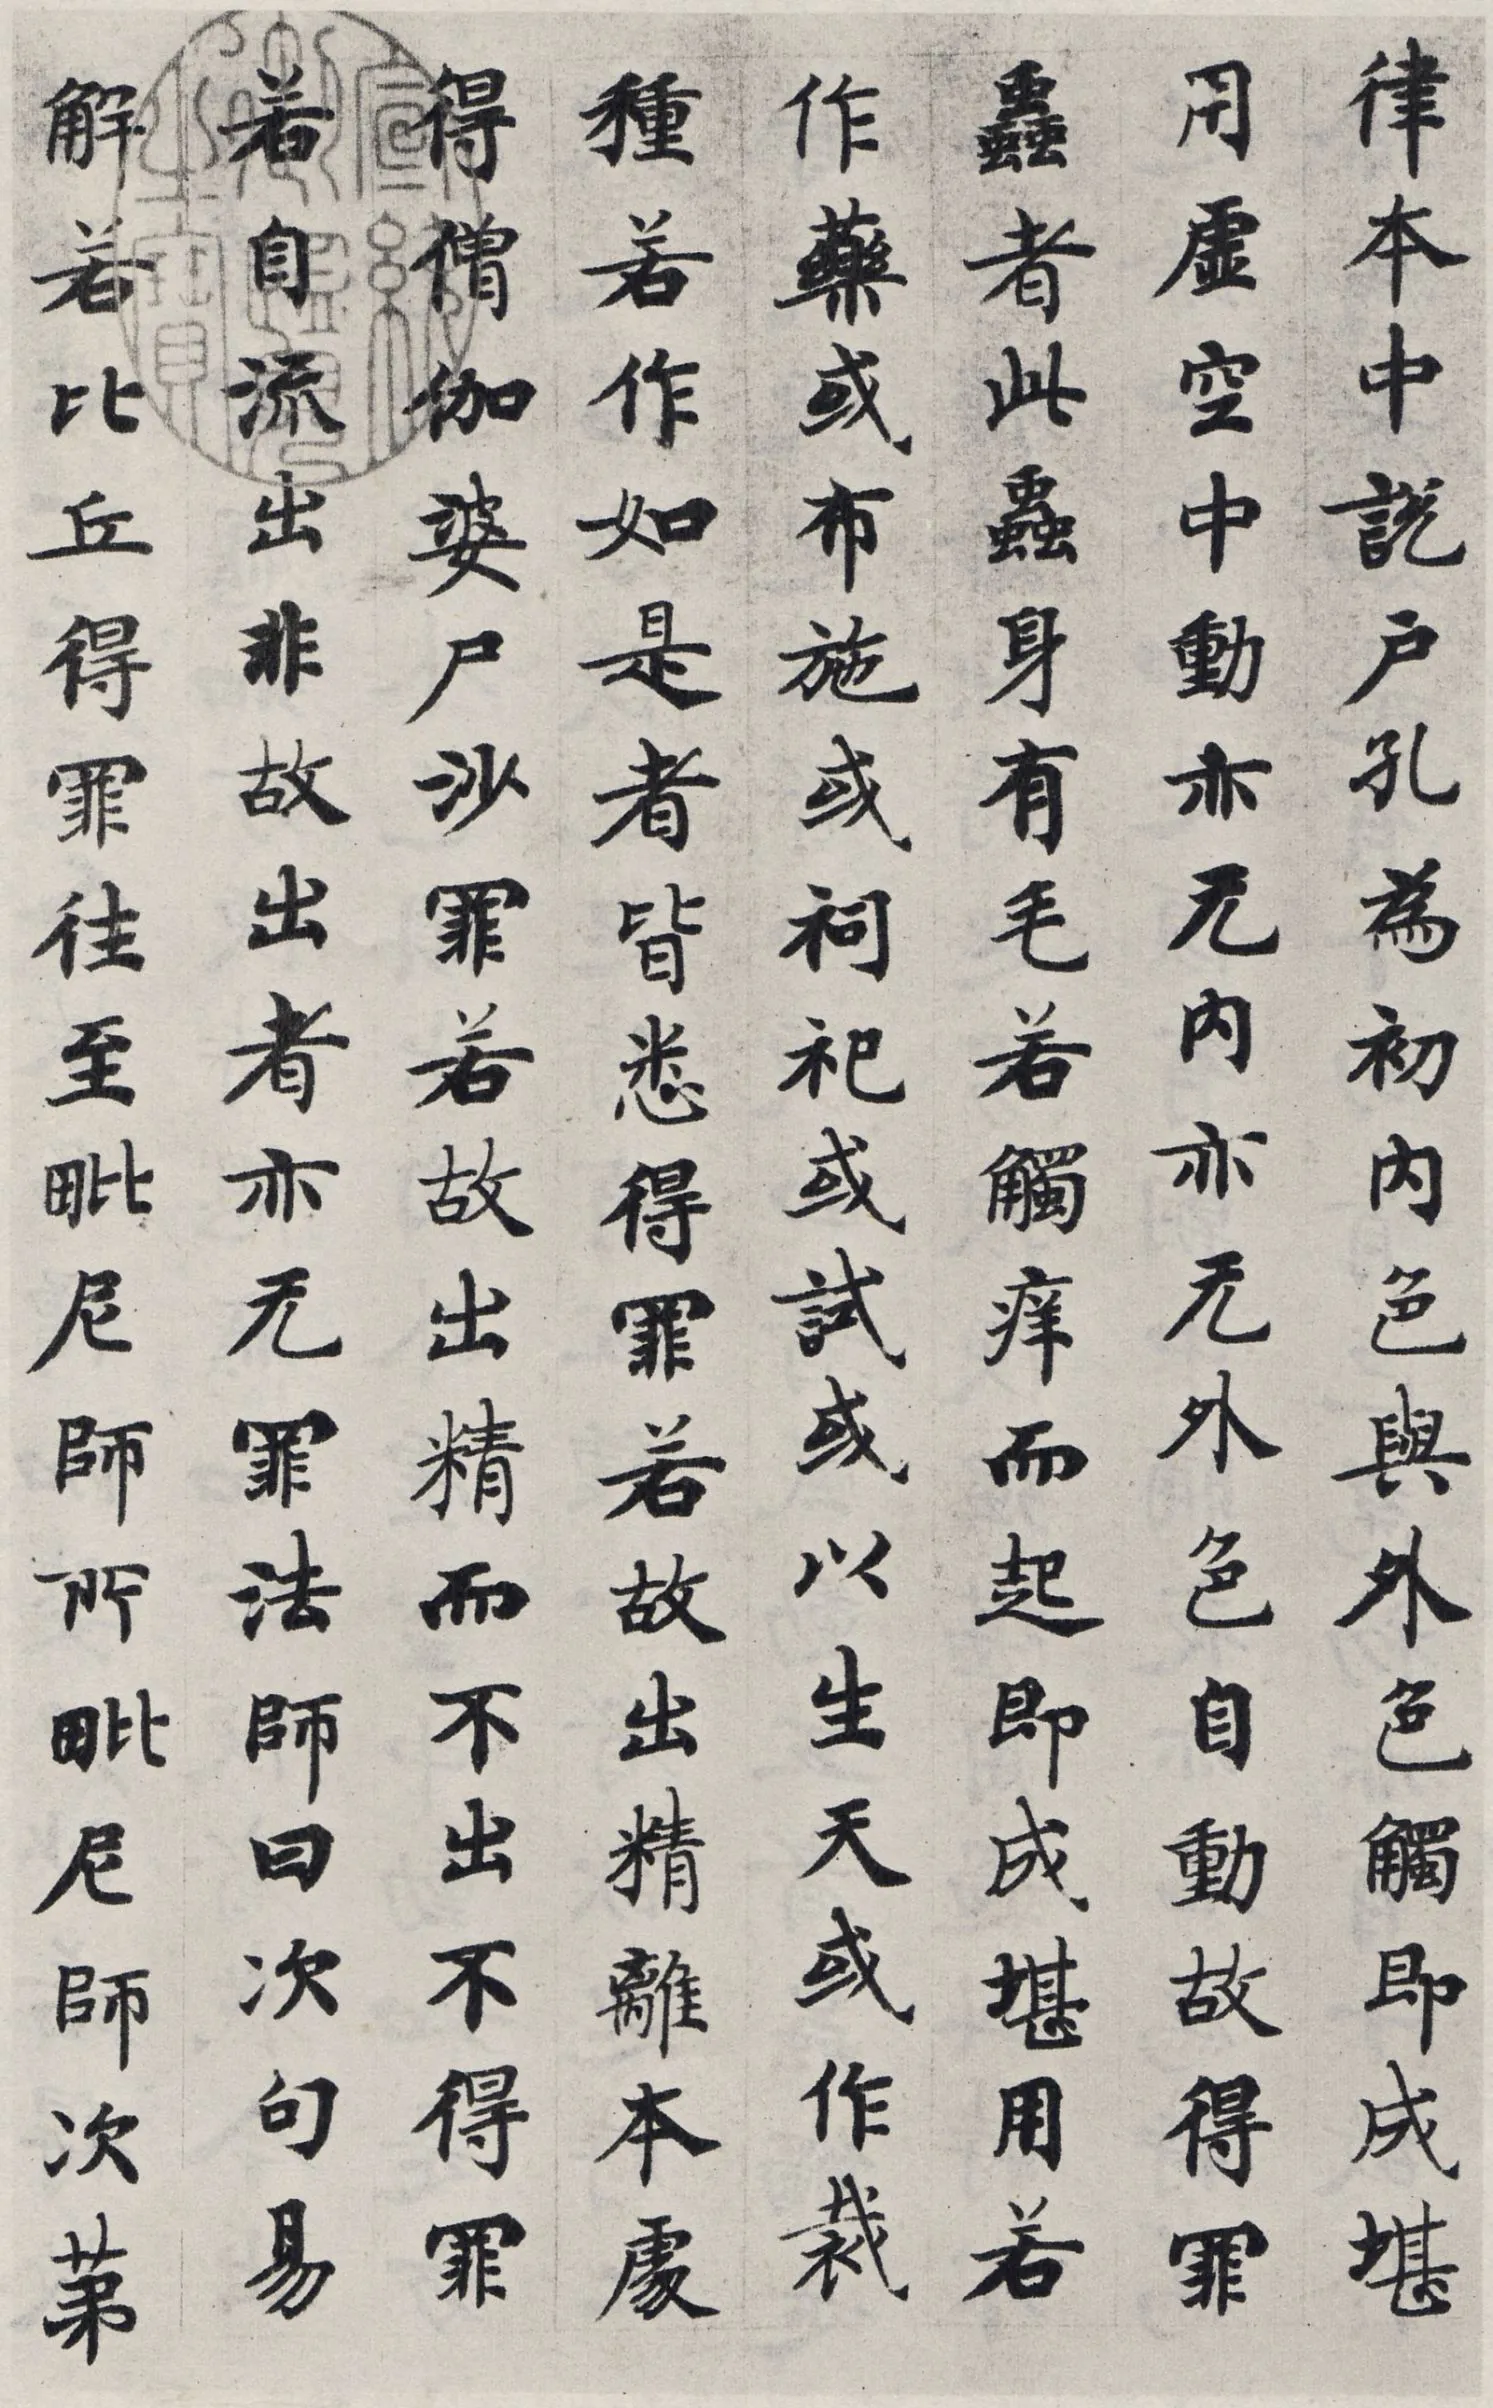 律本中說户孔為初内色與外色觸即成堪
用虛空中動亦无内亦无外色自動故得罪
蟲者此蟲身有毛若觸痒而起即成堪用若
作藥或布施或祠祀或試或以生天或作裁
種若作如是者皆悉得罪若故出精離本處
得僧伽婆尸沙罪若故出精而不出不得罪
若自流出非故出者亦无罪法師曰次句易
解若比丘得罪往至毗尼師所毗尼師次苐